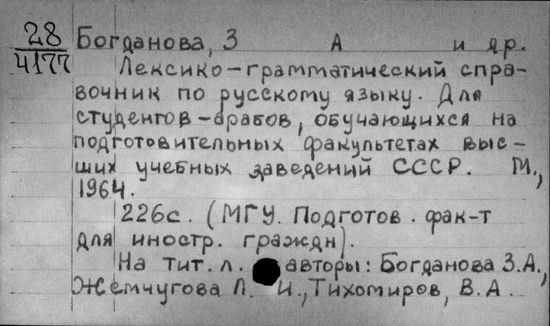 28
4177
Богданова, З А и др.
Лексико-грамматический спра-
вочник по русскому языку. Для
студентов-арабов, обучающихся на
подготовительных факультетах выс-
ших учебных заведений СССР. М.,
1964.
226с. (МГУ. Подготов. фак-т
для иностр. граждн).
На тит. л. авторы: Богданова З.А.,
Жемчугова Л. И., Тихомиров, В.А.